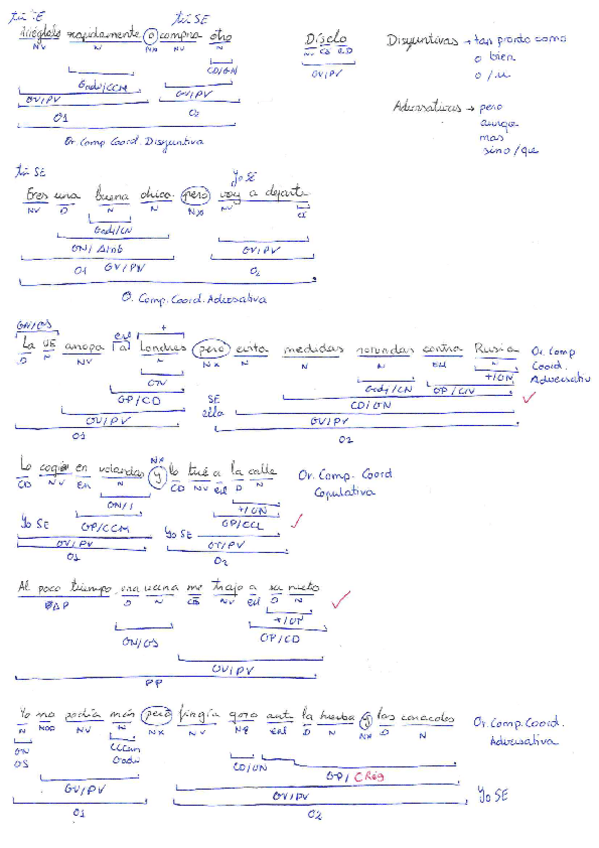 tú SE tú SE
Arréglalo rapidamente o compra otro Díselo Disyuntivas → tan pronto como
NV N NX NV N NV CI CD o bien
CD/GN GV/PV o / u
Gadv/CCM GV/PV
GV/PV O2 Adversativas → pero
O1 aunque
Or. Comp. Coord. Disyuntiva mas
sino/que
tú SE Yo SE
Eres una buena chica pero voy a dejarte
NV D N N NX NV CI
Gadj/CN
GN/Atrib GV/PV
O1 GV/PV O2
O. Comp. Coord. Adversativa
GN/OS enl +
La UE arropa a Londres pero evita medidas rotundas contra Rusia Or. Comp
D N NV N NX NV N N enl N Coord.
GN Gadj/CN +/GN Adversativa
GP/CD SE GP/CN
ella CD/GN
GV/PV GV/PV
O1 O2
NX
Lo cogió en volandas y lo tiré a la calle Or. Comp. Coord
CD NV En N CD NV enl D N Copulativa
GN/T +/GN
Yo SE GP/CCM Yo SE GP/CCL
GV/PV GV/PV
O1 O2
Al poco tiempo una vecina me trajo a su nieto
D N NV enl D N
+/GN
GN/OS GP/CD
GV/PV
PP
Yo no podía más pero fingía gozo ante la hierba y los caracoles Or. Comp. Coord.
N NV N NX NV enl D N NX D N Adversativa
GN Gadv
OS CD/GN
GP/ CRég
GV/PV GV/PV Yo SE
O1 O2